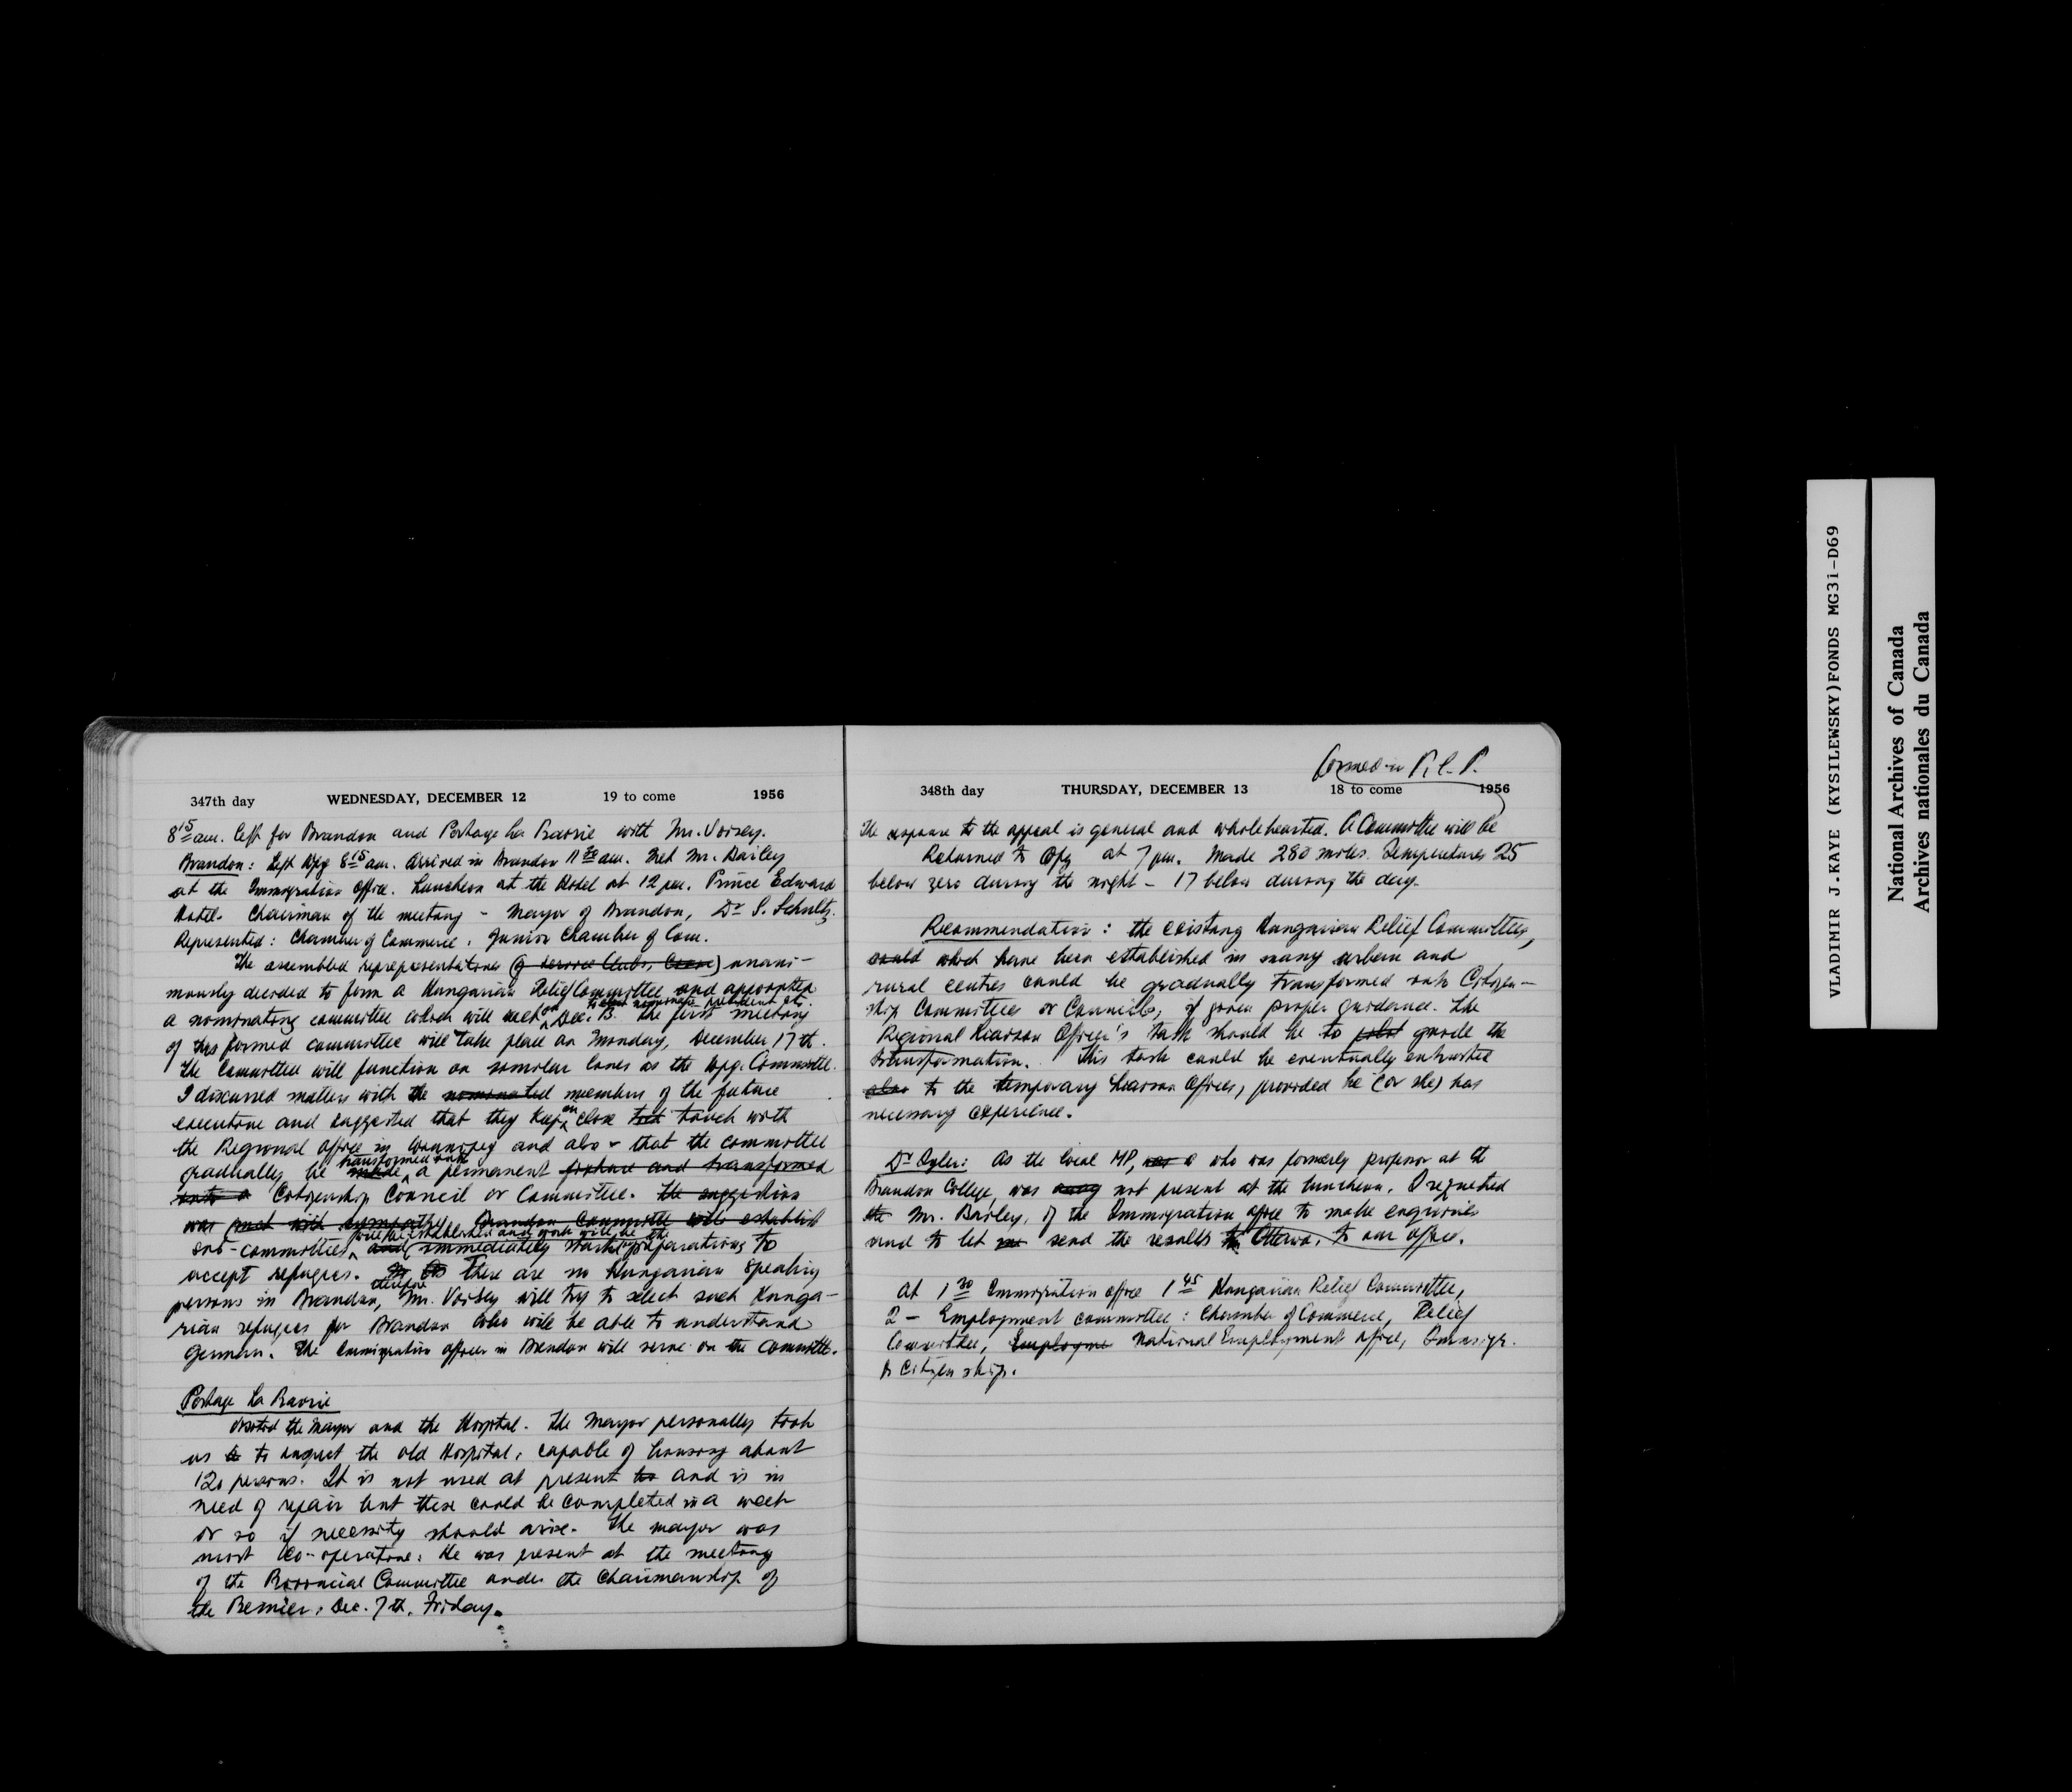 347th day WEDNESDAY, DECEMBER 12 19 to come 1956
8 15 am. left for Brandon and Portage La Prairie with Mr. Voisey.
Brandon: Left Wpg 8 15 am. Arrived in Brandon 11 30 am. Met Mr. Bailey
at the Immigration Office. Luncheon at the Hotel at 12 pm. Prince Edward
Hotel. Chairman of the meeting - Mayor of Brandon, Dr S. Schultz.
Represented: Chamber of Commerce, Junior Chamber of Com.
The assembled represpresentatives (of service Clubs, ) unani-
mously decided to form a Hungarian Relief Committee and appointed
a nominating committee which will meet on Dec. 13. to elect nominate president etc. The first meeting
of this formed committee will take place on Monday, December 17th.
The Committee will function on similar lines as the Wpg. Committee.
I discussed matters with the nominated members of the future
executive and suggested that they keep in close touch with
the Regional office in Winnipeg and also that the committee
gradually be made transformed into a permanent fixture and transformed
into a Citizenship Council or Committee. The suggestion
was met with sympathy. Brandon Committee will establish
sub-committees will be established and work will be the and immediately start preparations to
accept refugees. There are no Hungarian speaking
persons in Brandon, therefore Mr. Voisey will try to select such Hunga-
rian refugees for Brandon who will be able to understand
German. The Immigration officer in Brandon will serve on the committee.
Portage La Prairie
Visited the Mayor and the Hospital. The Mayor personally took
us to to inspect the old Hospital, capable of housing about
120 persons. It is not used at present and is in
need of repair but these could be completed in a week
or so if necessity should arise. The mayor was
most co-operative. He was present at the meeting
of the Provincial Committee under the Chairmanship of
the Premier, Dec. 7th, Friday.
formed in P. l. P.
348th day THURSDAY, DECEMBER 13 18 to come 1956
The response to the appeal is general and wholehearted. A Committee will be
Returned to Wpg at 7 pm. Made 280 miles. Temperatures 25
below zero during the night - 17 below during the day.
Recommendation: the existing Hungarian Relief Committees,
could which have been established in many urban and
rural centres could be gradually transformed into Citizen-
ship Committees or Councils, if given proper guidance. The
Regional Liaison Officer's task should be to pilot guide the
transformation. This task could be eventually entrusted
also to the temporary Liaison Officer, provided he (or she) has
necessary experience.
Dr Dyler: As the local MP, who was formerly professor at the
Brandon College, was not present at the luncheon. I requested
the Mr. Bailey, of the Immigration office to make enquiries
and to let me send the results to Ottawa, to our office.
At 1 30 Immigration office 1 45 Hungarian Relief Committee,
2 - Employment committee: Chamber of Commerce, Relief
Committee, Employme National Employment office, Immigr.
& Citizenship.
VLADIMIR J.KAYE (KYSILEWSKY)FONDS MG31-D69
National Archives of Canada
Archives nationales du Canada